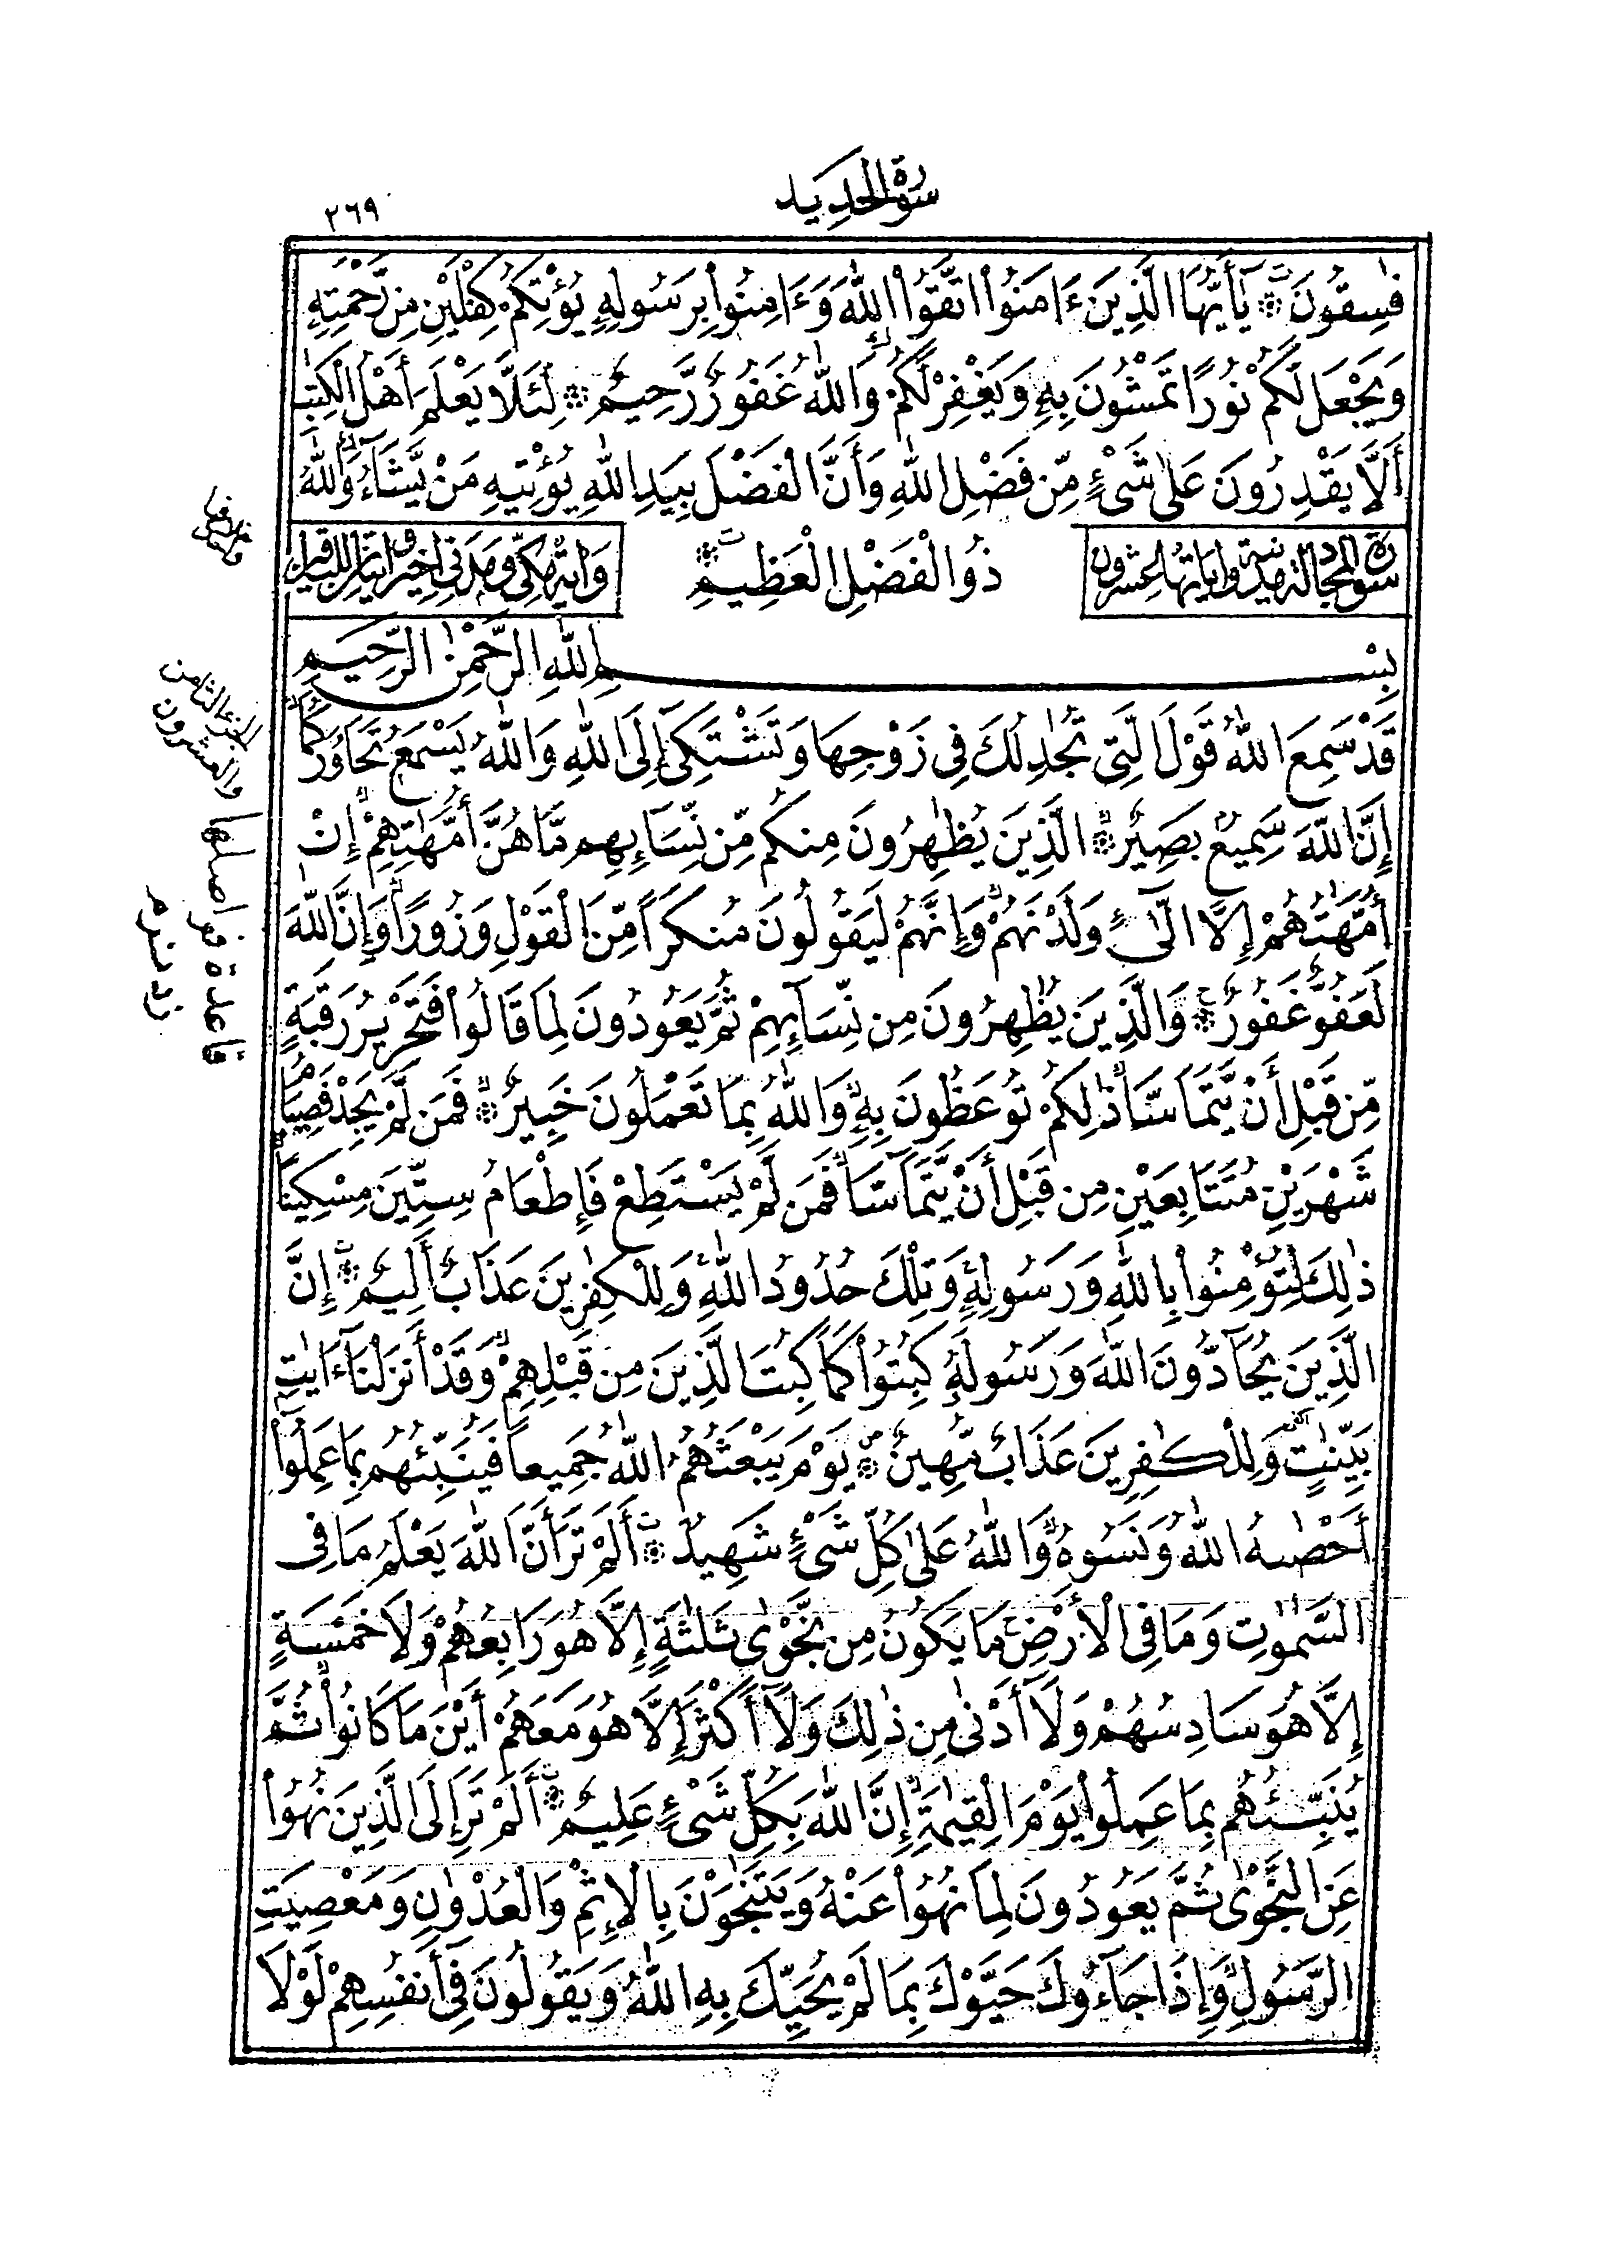 سورة الحديد
٢٦٩
فَٰسِقُونَ يَٰأَيُّهَا الَّذِينَ ءَامَنُوا اتَّقُوا اللَّهَ وَءَامِنُوا بِرَسُولِهِ يُؤْتِكُمْ كِفْلَيْنِ مِن رَّحْمَتِهِ
وَيَجْعَل لَّكُمْ نُورًا تَمْشُونَ بِهِ وَيَغْفِرْ لَكُمْ وَاللَّهُ غَفُورٌ رَّحِيمٌ لِئَلَّا يَعْلَمَ أَهْلُ الْكِتَٰبِ
أَلَّا يَقْدِرُونَ عَلَىٰ شَيْءٍ مِّن فَضْلِ اللَّهِ وَأَنَّ الْفَضْلَ بِيَدِ اللَّهِ يُؤْتِيهِ مَنْ يَّشَاءُ وَاللَّهُ
ذُو الْفَضْلِ الْعَظِيمِ
سورة المجادلة مدنية وآياتها عشرون
وآية مكي ومدني أخير واثنتان للباقين
بِسْمِ اللَّهِ الرَّحْمَٰنِ الرَّحِيمِ
قَدْ سَمِعَ اللَّهُ قَوْلَ الَّتِي تُجَٰدِلُكَ فِي زَوْجِهَا وَتَشْتَكِي إِلَى اللَّهِ وَاللَّهُ يَسْمَعُ تَحَاوُرَكُمَا
إِنَّ اللَّهَ سَمِيعٌ بَصِيرٌ الَّذِينَ يُظَٰهِرُونَ مِنكُم مِّن نِّسَائِهِم مَّا هُنَّ أُمَّهَٰتِهِمْ إِنْ
أُمَّهَٰتُهُمْ إِلَّا الَّٰـِٔي وَلَدْنَهُمْ وَإِنَّهُمْ لَيَقُولُونَ مُنكَرًا مِّنَ الْقَوْلِ وَزُورًا وَإِنَّ اللَّهَ
لَعَفُوٌّ غَفُورٌ وَالَّذِينَ يُظَٰهِرُونَ مِن نِّسَائِهِمْ ثُمَّ يَعُودُونَ لِمَا قَالُوا فَتَحْرِيرُ رَقَبَةٍ
مِّن قَبْلِ أَنْ يَّتَمَاسَّا ذَٰلِكُمْ تُوعَظُونَ بِهِ وَاللَّهُ بِمَا تَعْمَلُونَ خَبِيرٌ فَمَن لَّمْ يَجِدْ فَصِيَامُ
شَهْرَيْنِ مُتَتَابِعَيْنِ مِن قَبْلِ أَنْ يَّتَمَاسَّا فَمَن لَّمْ يَسْتَطِعْ فَإِطْعَامُ سِتِّينَ مِسْكِينًا
ذَٰلِكَ لِتُؤْمِنُوا بِاللَّهِ وَرَسُولِهِ وَتِلْكَ حُدُودُ اللَّهِ وَلِلْكَٰفِرِينَ عَذَابٌ أَلِيمٌ إِنَّ
الَّذِينَ يُحَادُّونَ اللَّهَ وَرَسُولَهُ كُبِتُوا كَمَا كُبِتَ الَّذِينَ مِن قَبْلِهِمْ وَقَدْ أَنزَلْنَا ءَايَٰتٍ
بَيِّنَٰتٍ وَلِلْكَٰفِرِينَ عَذَابٌ مُّهِينٌ يَوْمَ يَبْعَثُهُمُ اللَّهُ جَمِيعًا فَيُنَبِّئُهُم بِمَا عَمِلُوا
أَحْصَىٰهُ اللَّهُ وَنَسُوهُ وَاللَّهُ عَلَىٰ كُلِّ شَيْءٍ شَهِيدٌ أَلَمْ تَرَ أَنَّ اللَّهَ يَعْلَمُ مَا فِي
السَّمَٰوَٰتِ وَمَا فِي الْأَرْضِ مَا يَكُونُ مِن نَّجْوَىٰ ثَلَٰثَةٍ إِلَّا هُوَ رَابِعُهُمْ وَلَا خَمْسَةٍ
إِلَّا هُوَ سَادِسُهُمْ وَلَا أَدْنَىٰ مِن ذَٰلِكَ وَلَا أَكْثَرَ إِلَّا هُوَ مَعَهُمْ أَيْنَ مَا كَانُوا ثُمَّ
يُنَبِّئُهُم بِمَا عَمِلُوا يَوْمَ الْقِيَٰمَةِ إِنَّ اللَّهَ بِكُلِّ شَيْءٍ عَلِيمٌ أَلَمْ تَرَ إِلَى الَّذِينَ نُهُوا
عَنِ النَّجْوَىٰ ثُمَّ يَعُودُونَ لِمَا نُهُوا عَنْهُ وَيَتَنَٰجَوْنَ بِالْإِثْمِ وَالْعُدْوَٰنِ وَمَعْصِيَتِ
الرَّسُولِ وَإِذَا جَاءُوكَ حَيَّوْكَ بِمَا لَمْ يُحَيِّكَ بِهِ اللَّهُ وَيَقُولُونَ فِي أَنفُسِهِمْ لَوْلَا
الجزء الثامن
والعشرون
قاعدة فواصلها
زد ندم